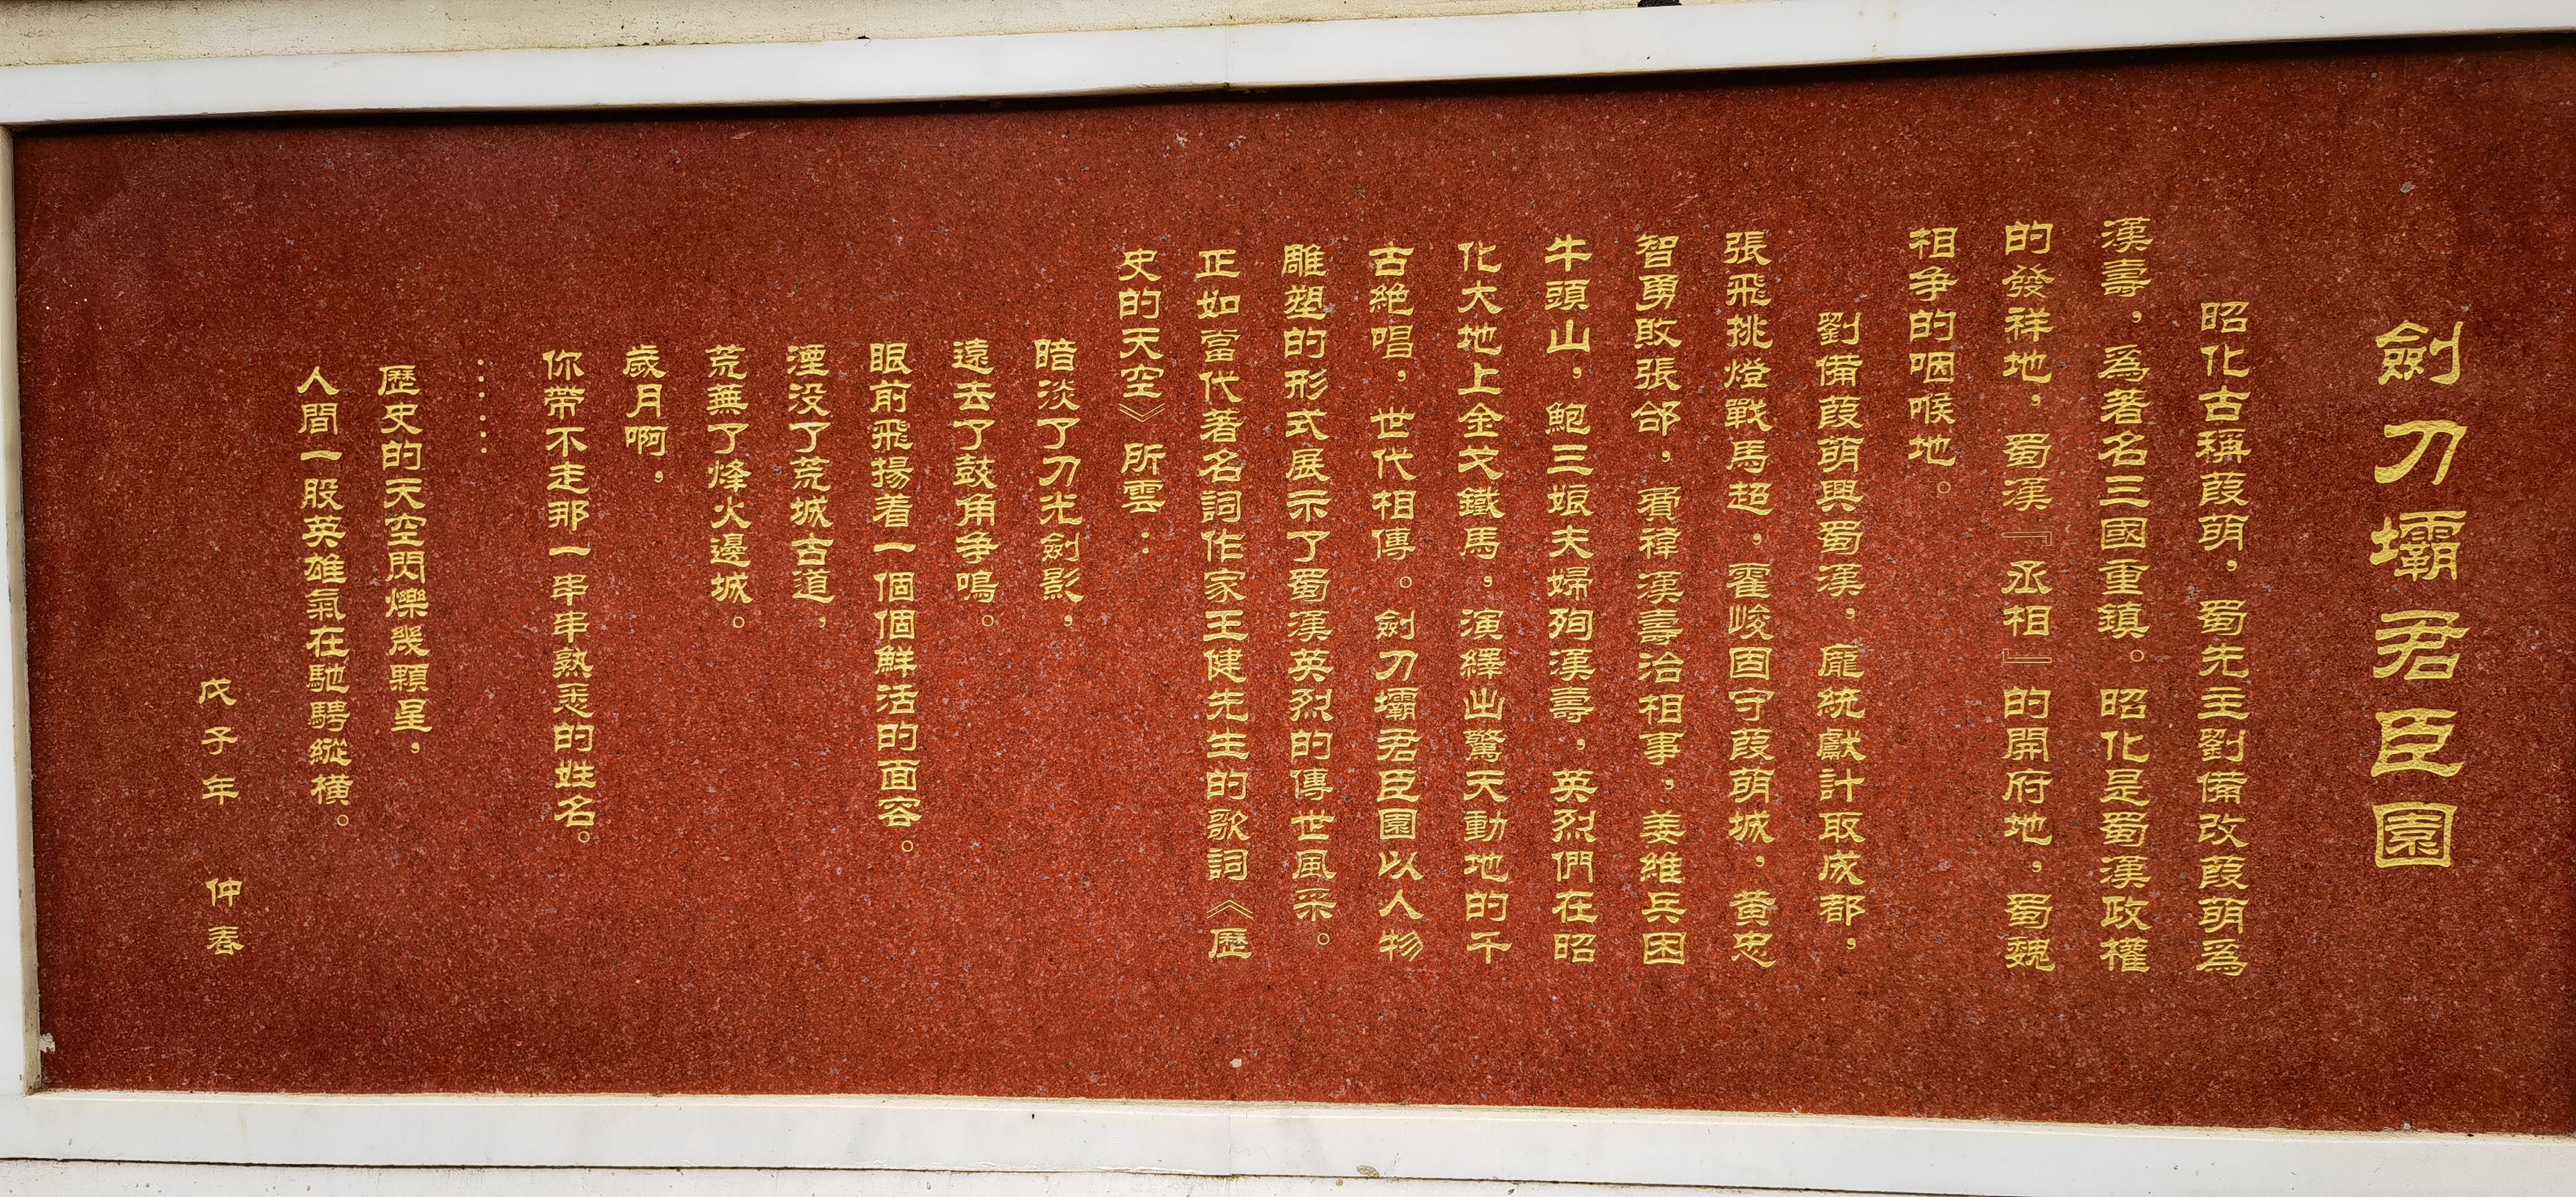 劍刀壩君臣園
昭化古稱葭萌，蜀先主劉備改葭萌爲
漢壽，爲著名三國重鎮。昭化是蜀漢政權
的發祥地，蜀漢『丞相』的開府地，蜀魏
相争的咽喉地。
劉備葭萌興蜀漢，龐統獻計取成都，
張飛挑燈戰馬超，霍峻固守葭萌城，黄忠
智勇敗張郃，費禕漢壽治相事，姜維兵困
牛頭山，鮑三娘夫婦殉漢壽，英烈們在昭
化大地上金戈鐵馬，演繹出驚天動地的千
古絶唱，世代相傳。劍刀壩君臣園以人物
雕塑的形式展示了蜀漢英烈的傳世風采。
正如當代著名詞作家王健先生的歌詞《歷
史的天空》所雲：
暗淡了刀光劍影，
遠去了鼓角争鳴。
眼前飛揚着一個個鮮活的面容。
湮没了荒城古道，
荒蕪了烽火邊城。
歲月啊，
你帶不走那一串串熟悉的姓名。
……
歷史的天空閃爍幾顆星，
人間一股英雄氣在馳騁縱横。
戊子年 仲春